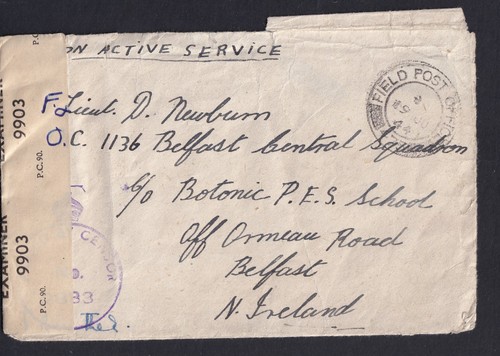 ON ACTIVE SERVICE
FIELD POST OFFICE
F. Lieut. D. Newburn
O.C. 1136 Belfast Central Squadron
c/o Botonic P.E.S. School
Off Ormeau Road
Belfast
N. Ireland
P.C. 90.
EXAMINER 9903
P.C. 90.
EXAMINER 9903
CENSOR